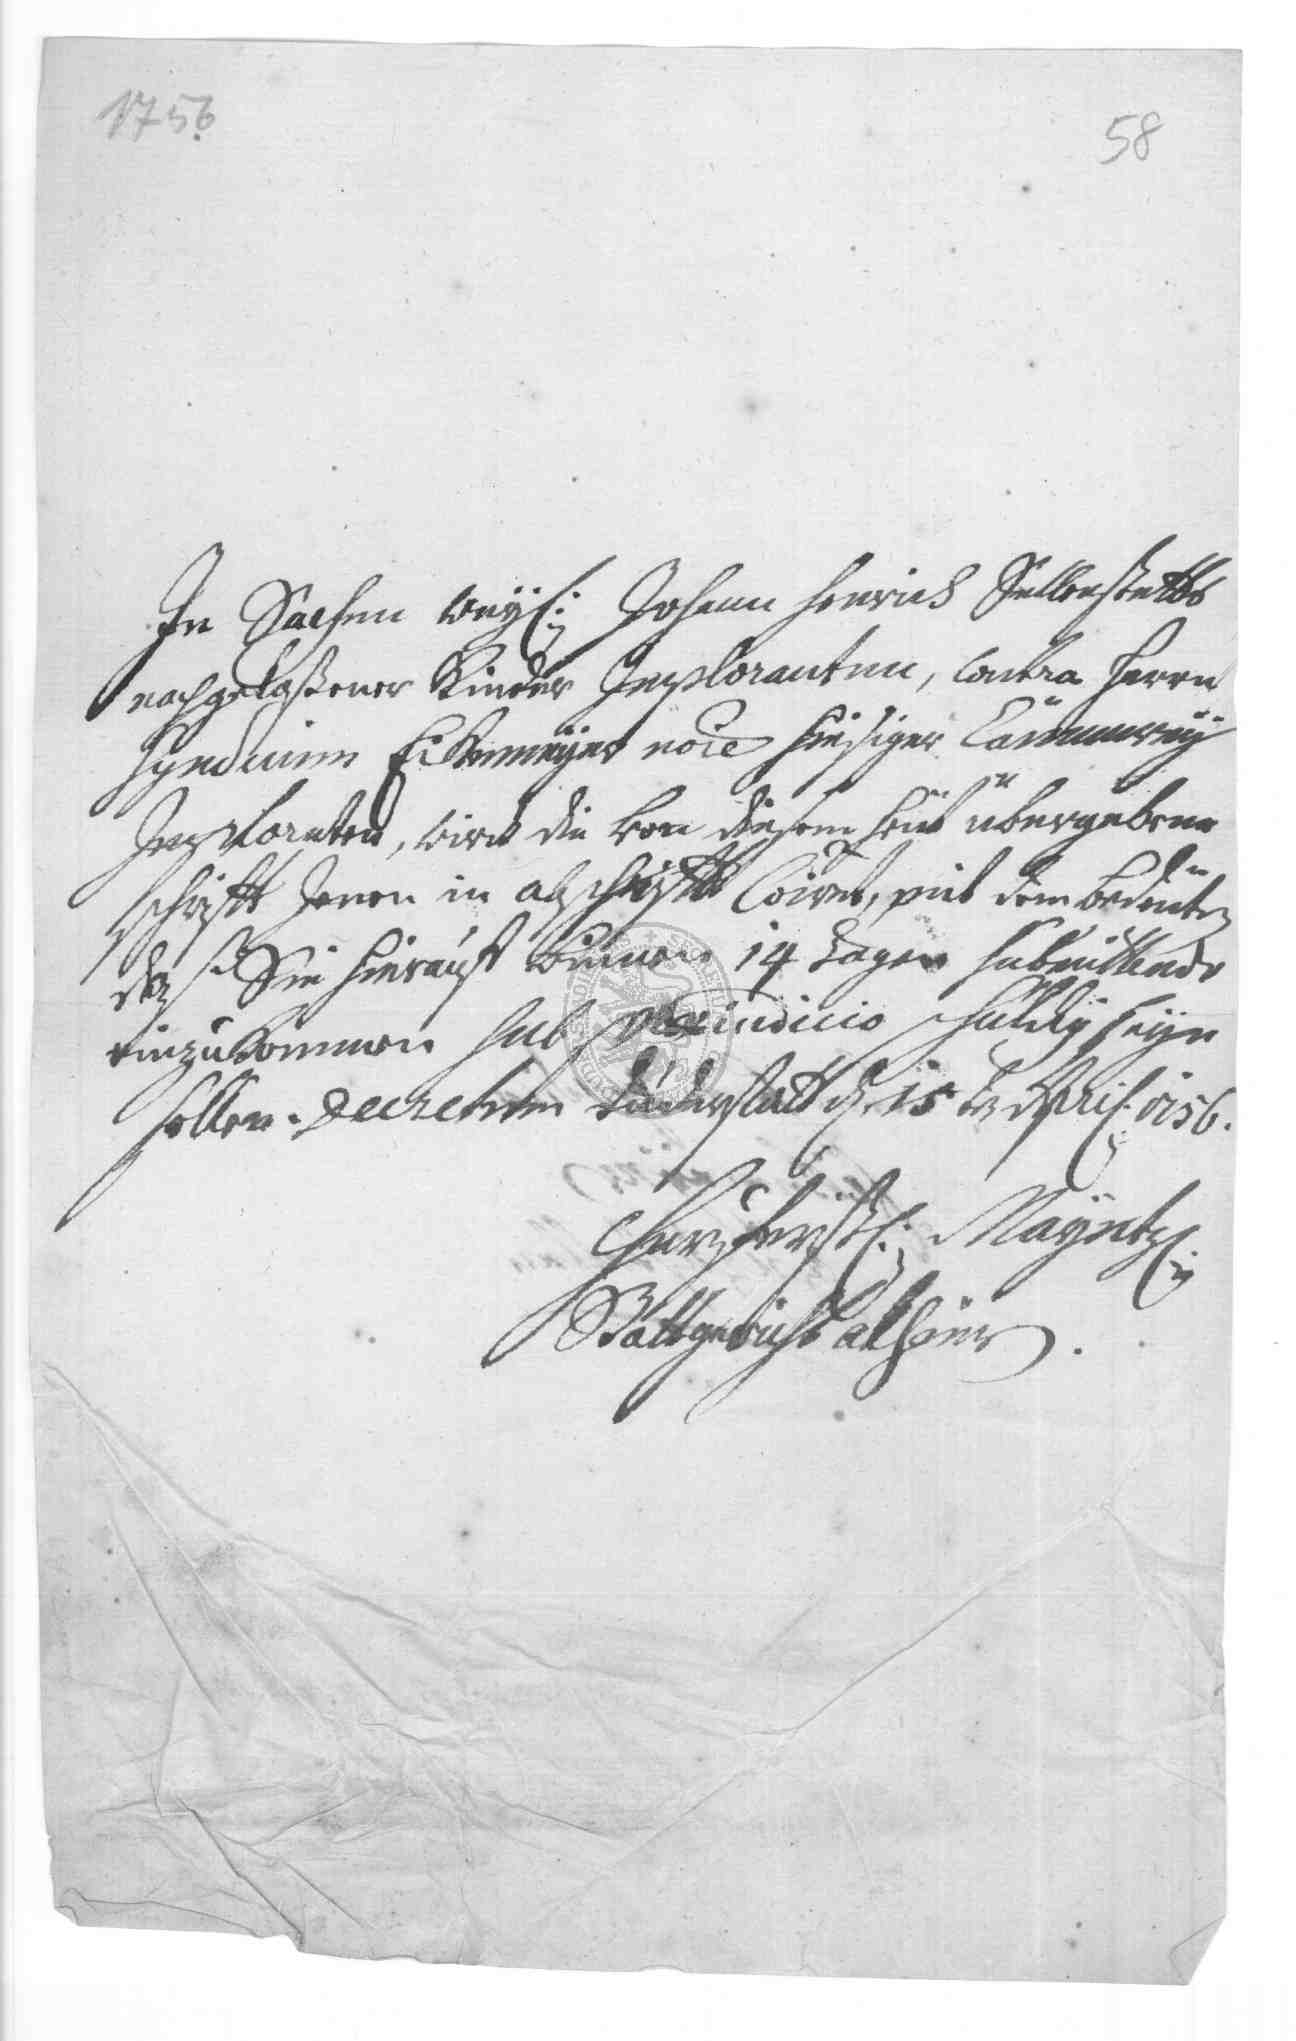 1756
58
In Sachen weyl: Johann Henrich Sellenstetts
nachgelaßener Kinder Imploranten, contra Herrn
Syndicum Eickenmeyer noie hiesiger Cämmerey
Imploraten, wird die von diesem heut übergebene
schrifft Jenen in abschrifft coirt, mit dem bedeuten
daß Sie hierauf binnen 14 Tagen submittendo
einzukommen sub praeiudicio schuldig seyn
sollen. Decretum Duderstatt d. 15 t April 1756.
Churfürstl: Mayntzl:
Stattgericht alhier.